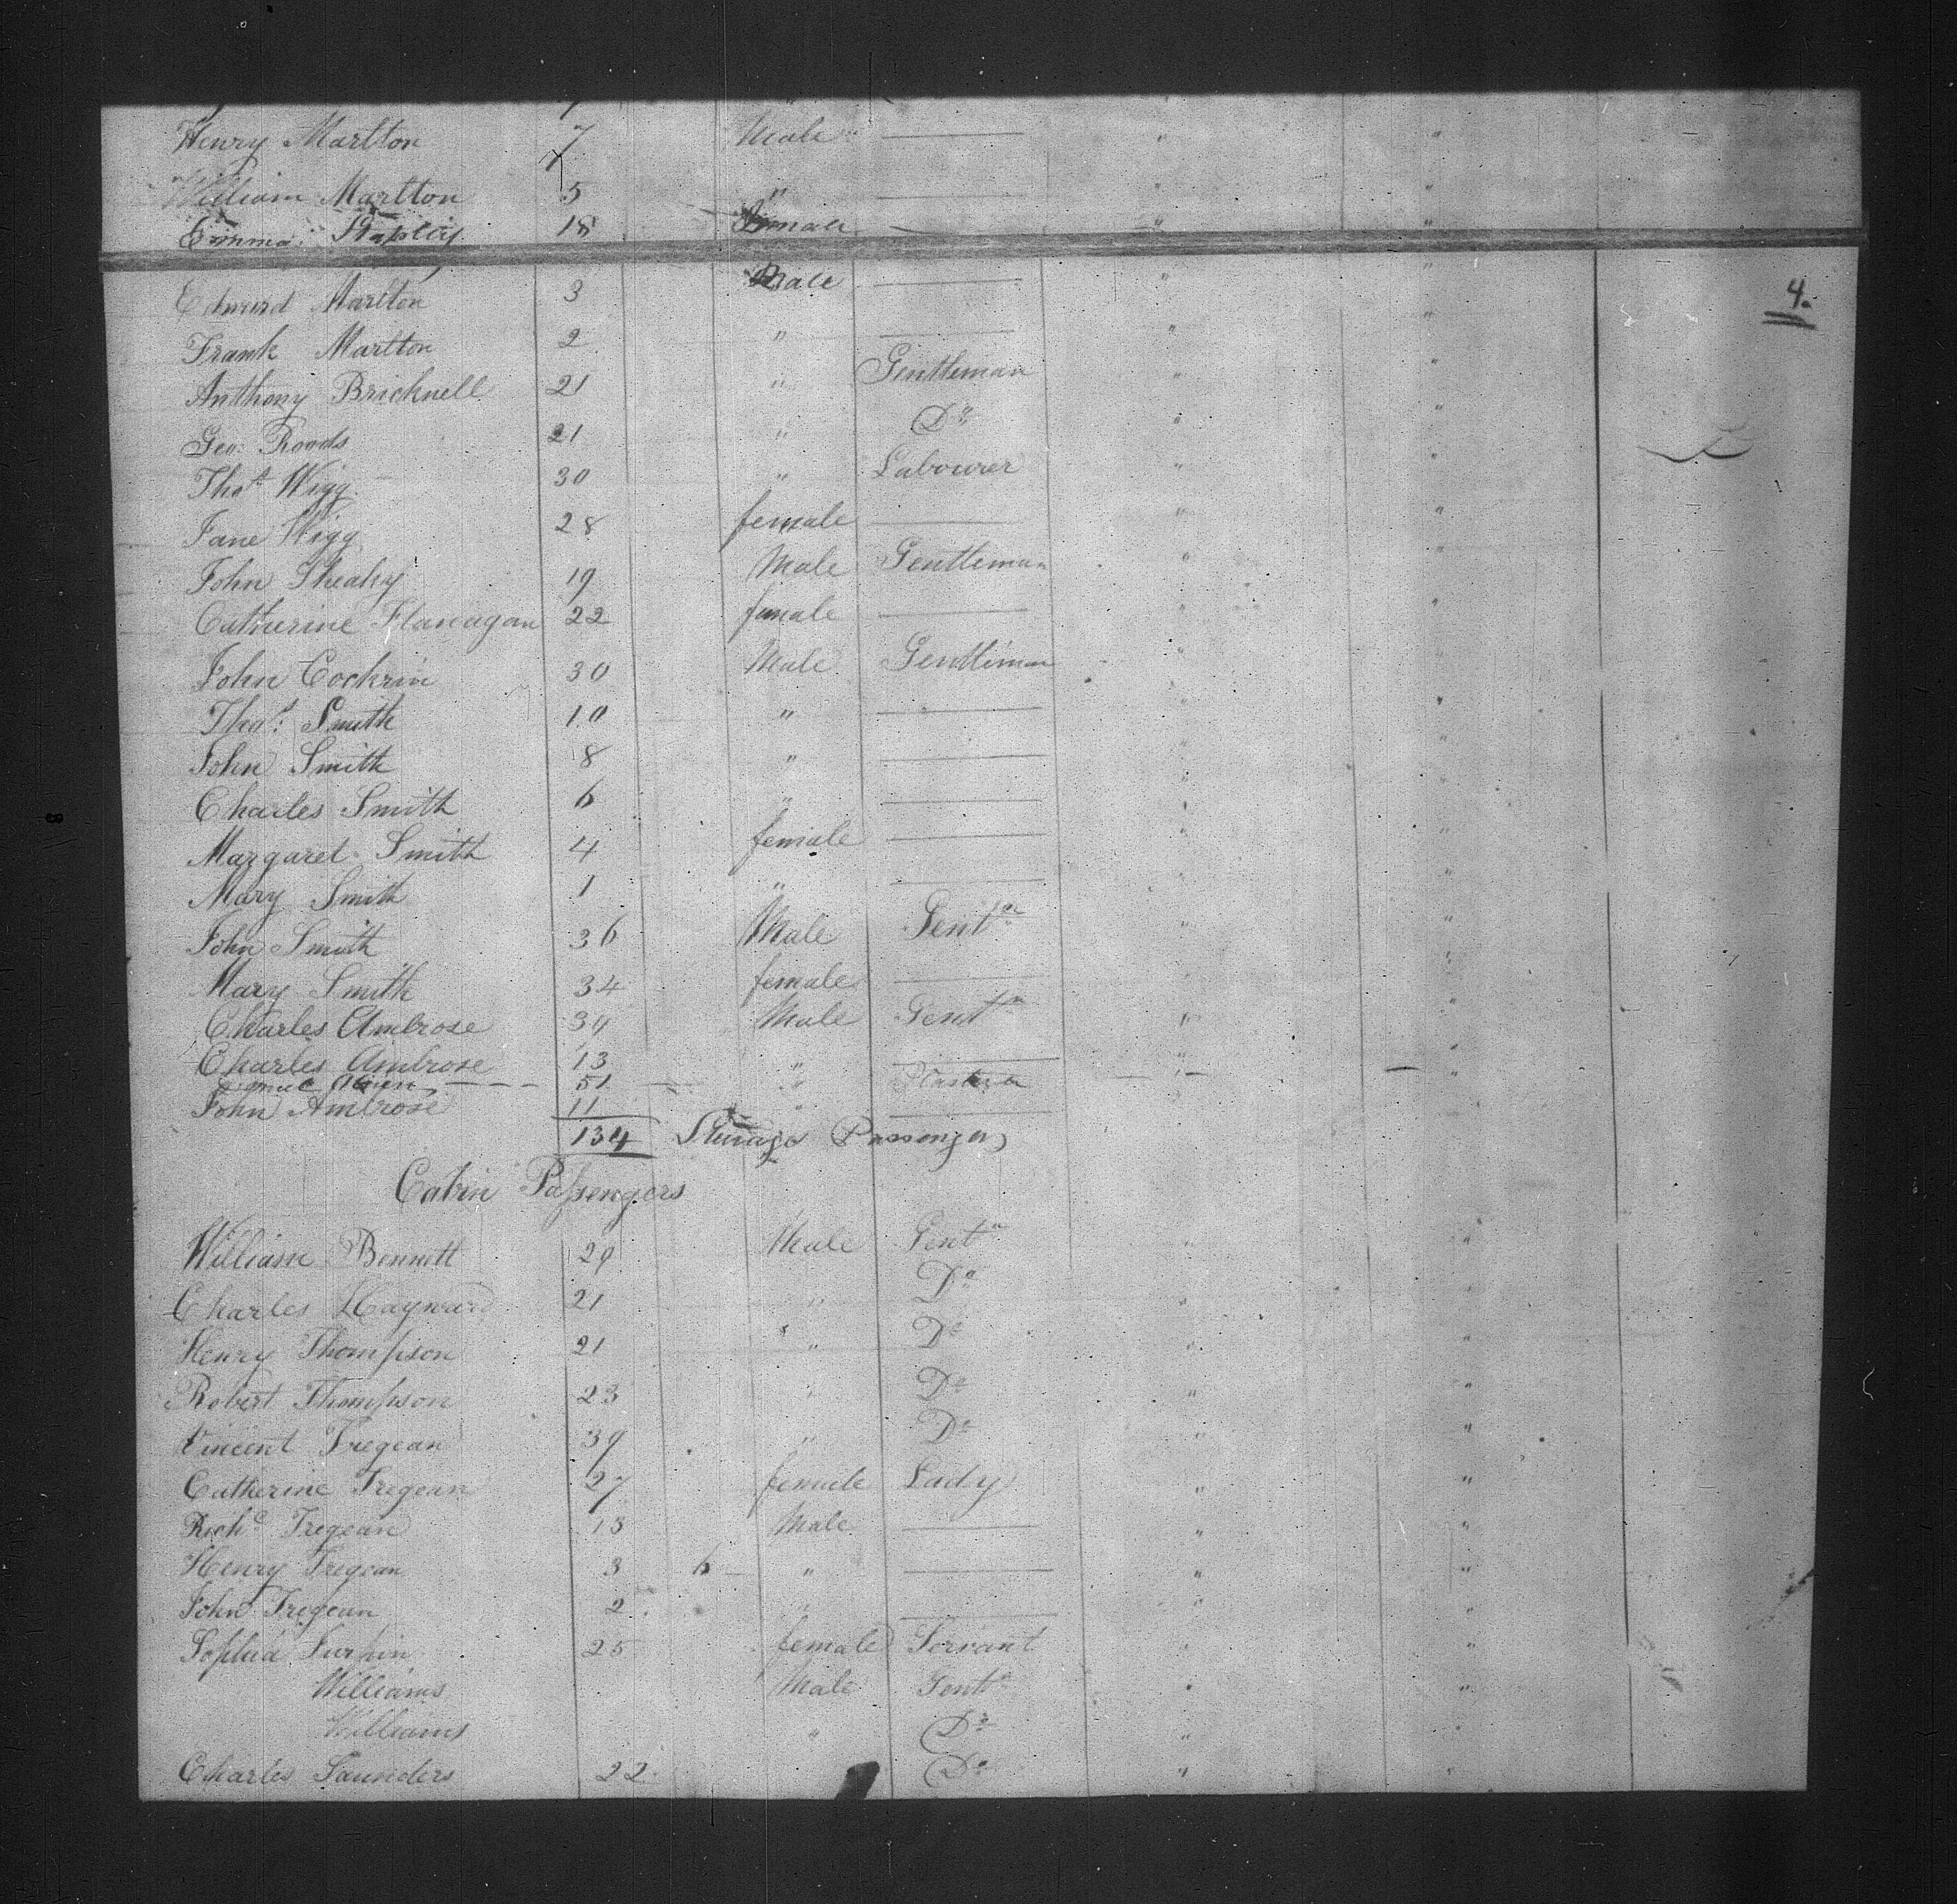 Henry Marlton 7 Male " — " "
William Marlton 5 " — " "
Emma Stapley 18 Female — " "
Edward Marlton 3 Male — " "
4.
Frank Marlton 2 " — " "
Anthony Bricknell 21 " Gentleman " "
Geo: Roods 21 " Do " "
Thos Wigg 30 " Labourer " "
Jane Wigg 28 female — " "
John Sheahy 19 Male Gentleman " "
Catherine Flanagan 22 female — " "
John Cockrin 30 Male Gentleman " "
Thos: Smith 10 " — " "
John Smith 8 " — " "
Charles Smith 6 " — " "
Margaret Smith 4 female — " "
Mary Smith 1 " — " "
John Smith 36 Male Gentn " "
Mary Smith 34 female — " "
Charles Ambrose 39 Male Gentn " "
Charles Ambrose 13 " — " "
51 " " "
John Ambrose 11 " —
134 Steerage Passengers
Cabin Passengers
William Bennett 29 Male Gentn " "
Charles Hayward 21 " Do " "
Henry Thompson 21 " Do " "
Robert Thompson 23 " Do " "
Vincent Tregean 39 " Do " "
Catherine Tregean 27 female Lady " "
Richd Tregean 13 Male — " "
Henry Tregean 3 6 " — " "
John Tregean 2 " — " "
Sophia 25 female Servant " "
Williams Male Gentn " "
Williams " Do " "
Charles Saunders 22 Do " "